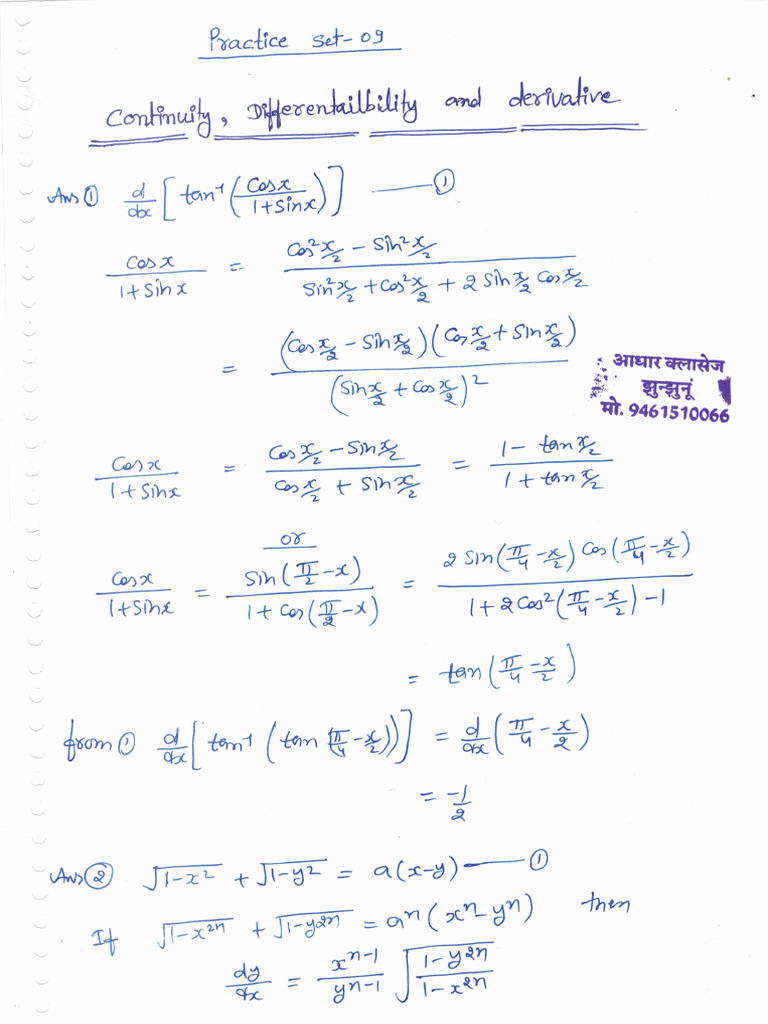 Practice set-09
Continuity, Differentailbility and derivative
Ans ① d/dx [tan⁻¹(Cosx/1+Sinx)] —— ①
Cosx/1+Sinx = Cos²x/2 – Sin²x/2 / Sin²x/2 + Cos²x/2 + 2 Sin x/2 Cos x/2
= (Cos x/2 – Sin x/2)(Cos x/2 + Sin x/2) / (Sin x/2 + Cos x/2)²
आधार क्लासेज
झुन्झुनूं
मो. 9461510066
Cosx/1+Sinx = Cos x/2 – Sin x/2 / Cos x/2 + Sin x/2 = 1 – tan x/2 / 1 + tan x/2
or
Cosx/1+Sinx = Sin(π/2 – x) / 1 + Cos(π/2 – x) = 2 Sin(π/4 – x/2) Cos(π/4 – x/2) / 1 + 2Cos²(π/4 – x/2) – 1
= tan(π/4 – x/2)
from ① d/dx [tan⁻¹(tan(π/4 – x/2))] = d/dx (π/4 – x/2)
= -1/2
Ans ② √1–x² + √1–y² = a(x–y) —— ①
If √1–x²ⁿ + √1–y²ⁿ = aⁿ(xⁿ–yⁿ) then
dy/dx = xⁿ⁻¹/yⁿ⁻¹ √1–y²ⁿ/1–x²ⁿ